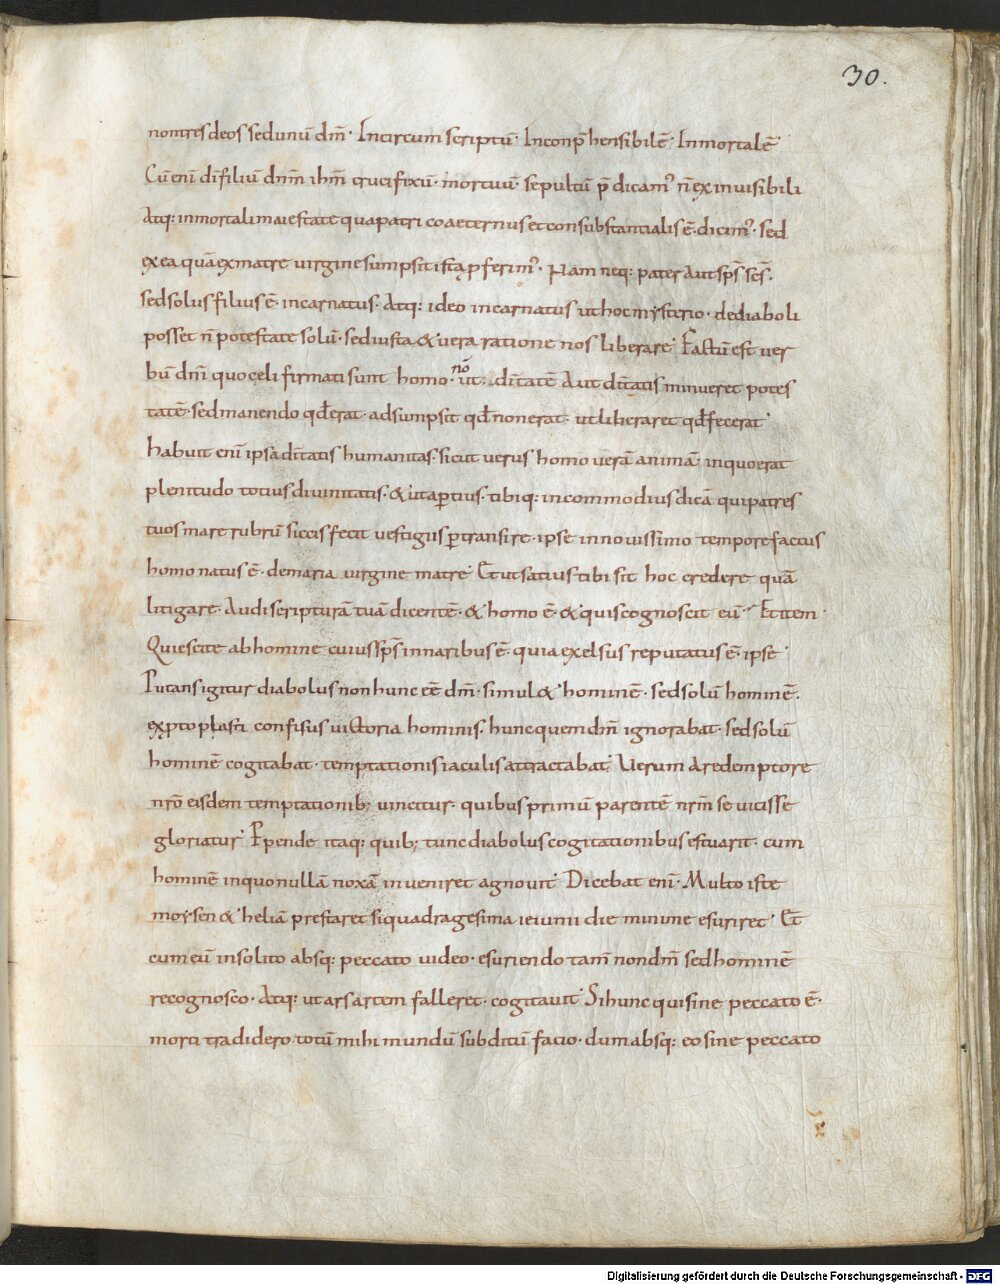 30.
nontres deos sed unū dm̄. Incircumscriptū. Inconp̄hensibilē. Inmortalē
Cū enī dī filiū dnm̄ ihm̄ crucifixū. mortuū. sepultū p̄dicam᾽ n̄ ex invisibili
Atq: inmortali maiestate qua patri coaeternus et consubstantialis ē. dicim᾽. sed
ex ea quā ex matre virgine sumpsit ista p̱ferim᾽. Nam neq: pater aut sp̄s sc̄s.
sed solus filius ē. incarnatus. Atq: ideo incarnatus ut hoc mysterio. de diaboli
posset n̄ potestate solū. sed iusta & vera ratione nos liberare. Factū est ver
bū dm̄ quo celi firmati sunt homo. nō ut. ditatē Aut ditatis minueret potes
tatē. sed manendo qđ erat. adsumpsit qđ non erat. ut liberaret qđ fecerat.
habuit enī ipsa ditatis humanitas. sicut uerus homo uerā animā in quo erat
plenitudo totius divinitatis. & ut ap̱tius. tibiq: incommodius dicā qui patres
tuos mare rubrū siccis fecit vestigiis p̱transire. ipse in novissimo tempore factus
homo natus ē. de maria virgine matre. Et ut satius tibi sit hoc credere quā
litigare. Audi scripturā tuā dicentē. & homo ē. & quis cognoscit eū. Et item.
Quiescite ab homine cuius sp̄s in naribus ē. quia excelsus reputatus ē. ipse.
Putans igitur diabolus non hunc eē dm̄. simul & hominē. sed solū hominē.
ex ptoplasti confisus victoria hominis. hunc quem dm̄ ignorabat. sed solū
hominē cogitabat. temptationis iaculis attractabat. Verum a redemptore
nrō eisdem temptationib; vincitur. quibus primū parentē nrm̄ se vicisse
gloriatur. P̱pende itaq: quib; tunc diabolus cogitationibus estuarit. cum
hominē in quo nullā noxā inveniret agnovit. Dicebat enī. Multo iste
moysen & heliā prestaret si quadragesima ieiunii die minime esuriret. Et
cum eū insolito absq: peccato video. esuriendo tam̄ non dm̄ sed hominē
recognosco. Atq: ut ars artem falleret. cogitavit. Si hunc qui sine peccato ē.
morti tradidero. totū mihi mundū subditū facio. dum absq: eo sine peccato
Digitalisierung gefördert durch die Deutsche Forschungsgemeinschaft - DFG